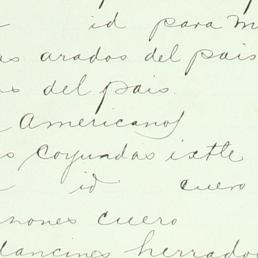 id para m
as arados del pais
del pais.
Americanos
s coyundas ixtle
id cuero
nones cuero
lancines herrados